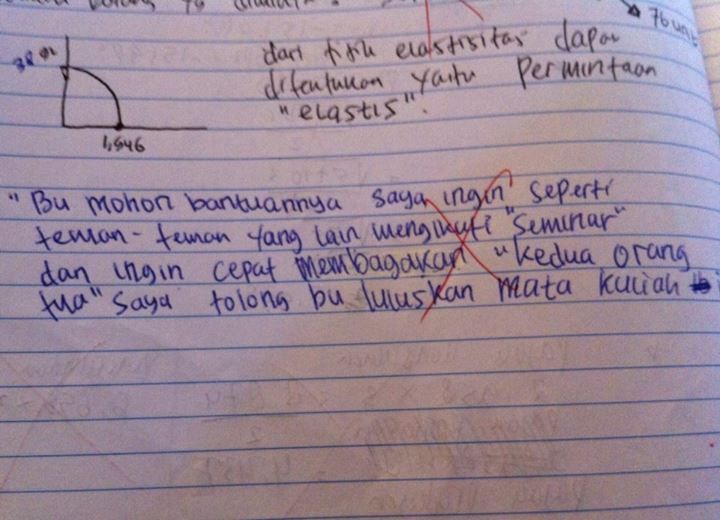 76 unit
dari titik elastisitas dapat
ditentukan yaitu Permintaan
"elastis".
1,546
"Bu mohon bantuannya saya ingin seperti
teman-teman yang lain mengikuti "seminar"
dan ingin cepat membagakan "kedua orang
tua" saya tolong bu luluskan mata kuliah